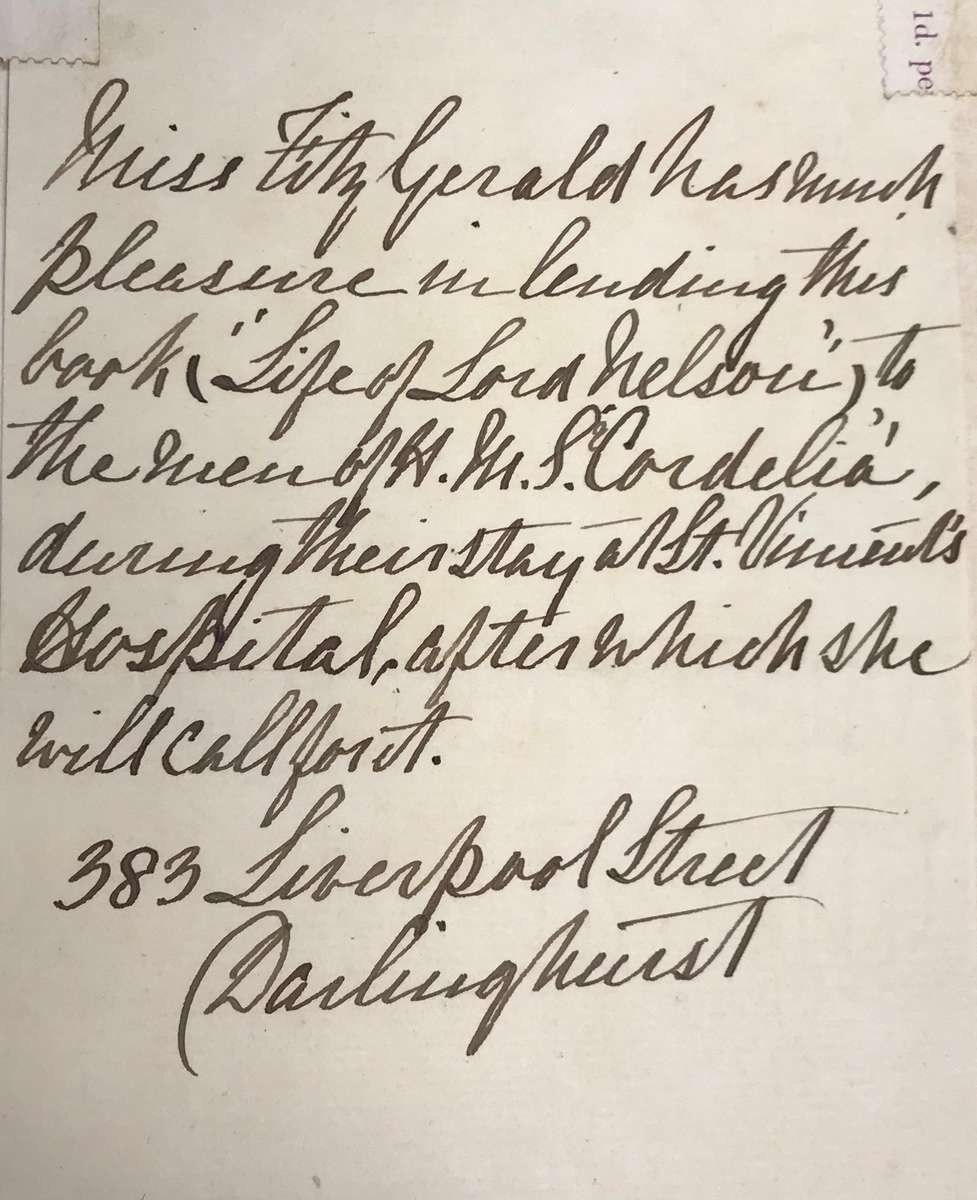 1d. pe
Miss FitzGerald has much
pleasure in lending this
book, ("Life of Lord Nelson"), to
the men of H.M.S. "Cordelia",
during their stay at St. Vincent's
Hospital, after which she
will call for it.
383 Liverpool Street
Darlinghurst